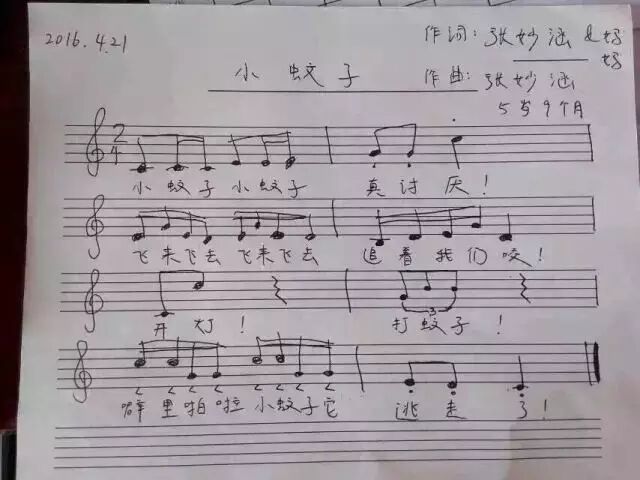 2016.4.21
作词:张妙涵&妈
妈
小蚊子
作曲:张妙涵
5岁9个月
2
4
小蚊子小蚊子 真讨厌!
飞来飞去飞来飞去 追着我们咬!
开灯! 打蚊子!
3
噼里啪啦小蚊子它 逃走了!